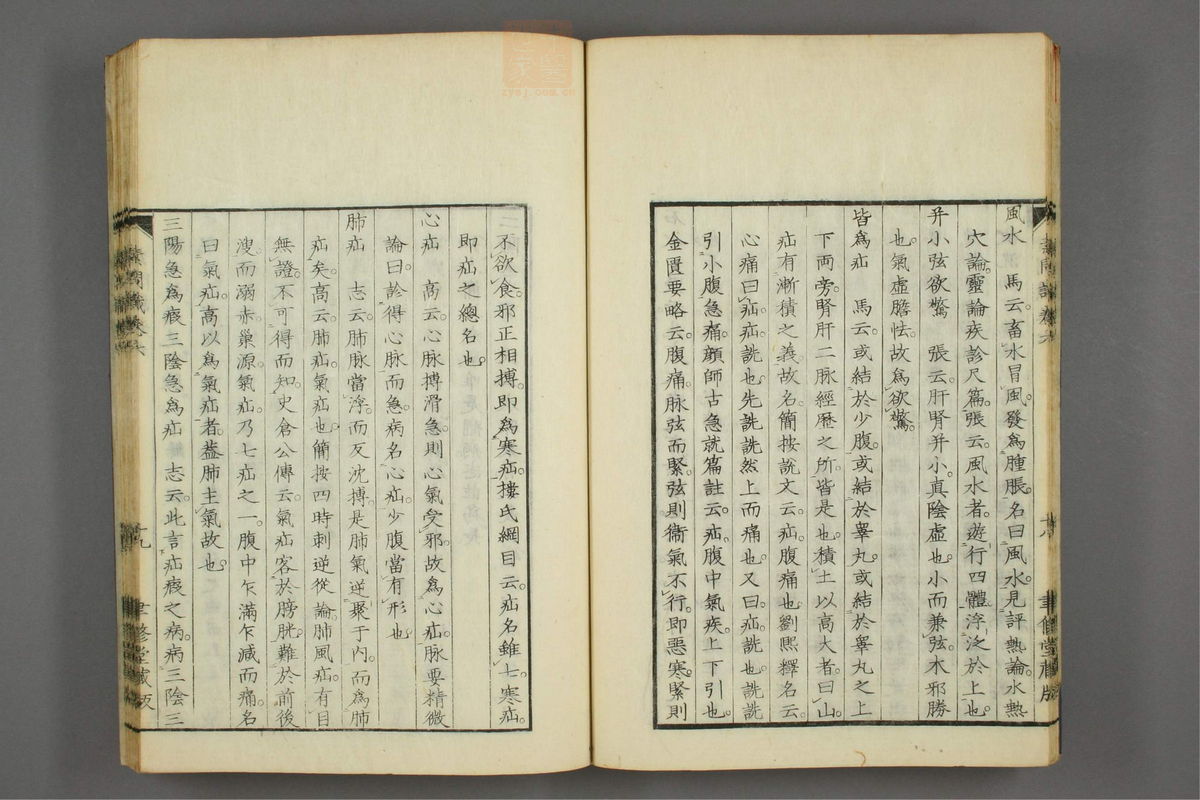 風水　馬云。畜水冒風。發爲腫脹。名曰風水。見評熱論。水熱
穴論。靈論疾診尺篇。張云。風水者。遊行四體。浮泛於上也。
幷小弦欲驚　張云。肝腎幷小。眞陰虛也。小而兼弦。木邪勝
也。氣虛膽怯。故爲欲驚。
皆爲疝　馬云。或結於少腹。或結於睾丸。或結於睾丸之上
下兩旁。腎肝二脈經歷之所。皆是也。積土以高大者。曰山
疝有漸積之義。故名。簡按說文云。疝。腹痛也。劉熙釋名云。
心痛曰疝。疝。詵也。先詵詵然上而痛也。又曰。疝。詵也。詵詵
引小腹急痛。顏師古急就篇註云。疝。腹中氣疾。上下引也。
金匱要略云。腹痛。脈弦而緊。弦則衞氣不行。卽惡寒。緊則
不欲食。邪正相搏。卽爲寒疝。摟氏綱目云。疝名雖七。寒疝。
卽疝之總名也。
心疝　高云。心脈搏滑急。則心氣受邪。故爲心疝。脈要精微
論曰。診得心脈而急。病名心疝。少腹當有形也
肺疝　志云。肺脈當浮。而反沈搏。是肺氣逆聚于內。而爲肺
疝矣。高云。肺疝。氣疝也。簡按四時刺逆從論。肺風疝。有目
無證。不可得而知。史倉公傳云。氣疝。客於膀胱。難於前後
溲。而溺赤。巢源。氣疝。乃七疝之一。腹中乍滿乍減而痛。名
曰氣疝。高以爲氣疝者。蓋肺主氣故也。
三陽急爲瘕三陰急爲疝　志云。此言疝瘕之病。病三陰三
素問識卷六
十九
聿修堂藏版